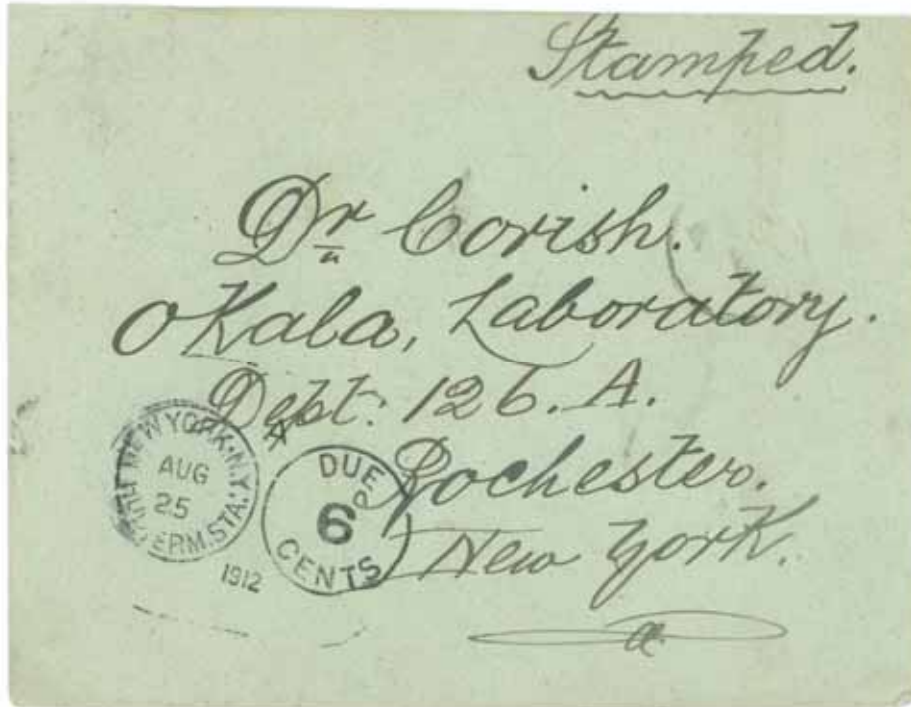 Stamped.
Dr Corish.
OKala, Laboratory.
Dept: 126. A.
Rochester.
New York.
NEW YORK, N.Y.
AUG
25
TERM. STA.
1912
DUE
6
CENTS